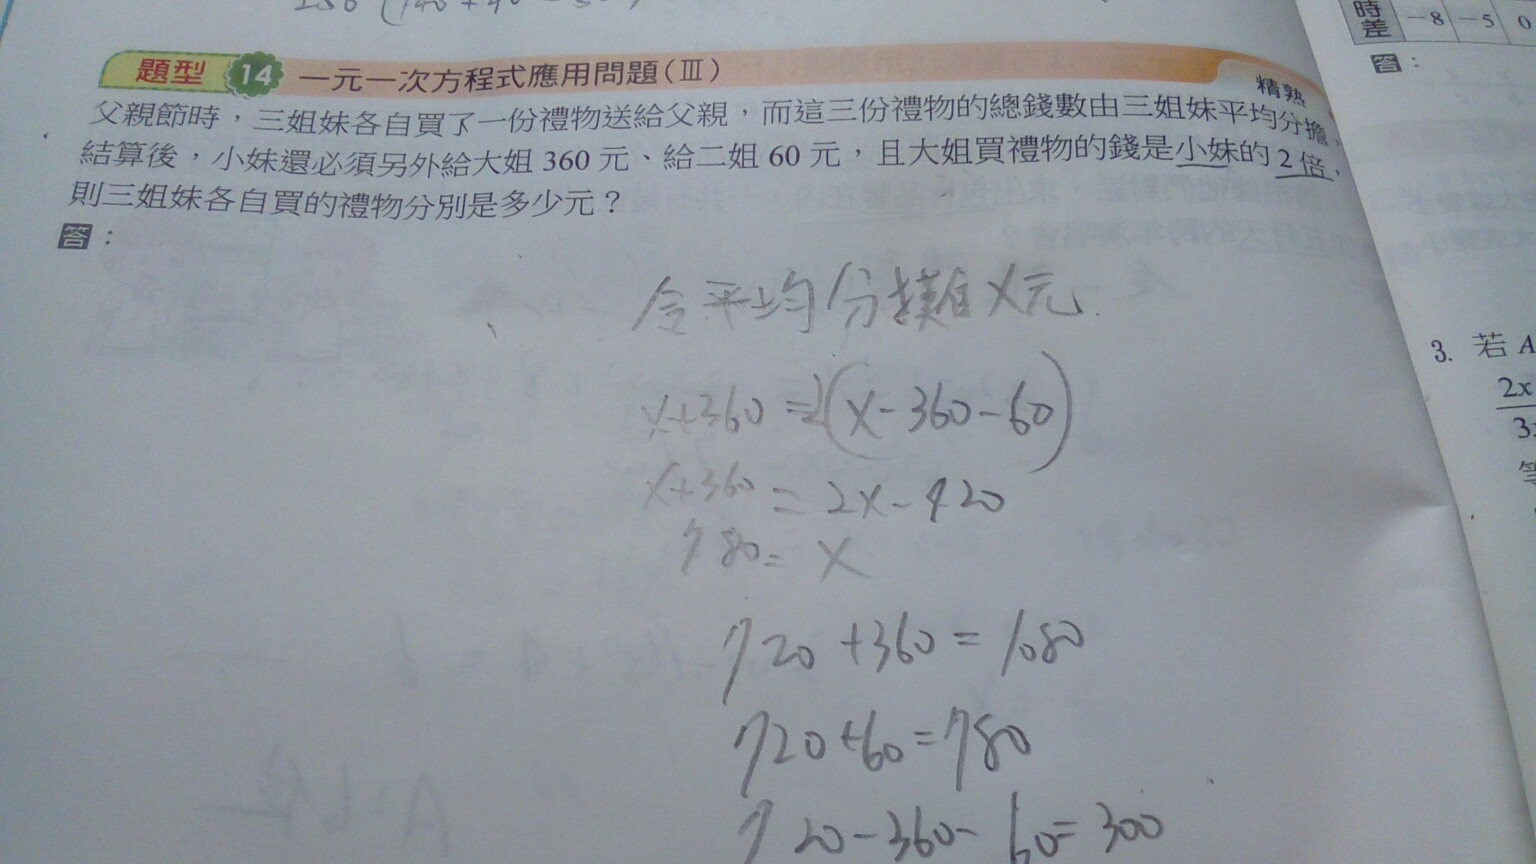 題型 14 一元一次方程式應用問題(III)
精熟
父親節時，三姐妹各自買了一份禮物送給父親，而這三份禮物的總錢數由三姐妹平均分擔，
結算後，小妹還必須另外給大姐 360 元、給二姐 60 元，且大姐買禮物的錢是小妹的 2 倍，
則三姐妹各自買的禮物分別是多少元？
答：
令平均分攤 x 元
x+360 = 2(x-360-60)
x+360 = 2x-420
780 = x
720 + 360 = 1080
720 + 60 = 780
720 - 360 - 60 = 300
時差 -8 -5 0
答：
3. 若 A
2x
3x
等